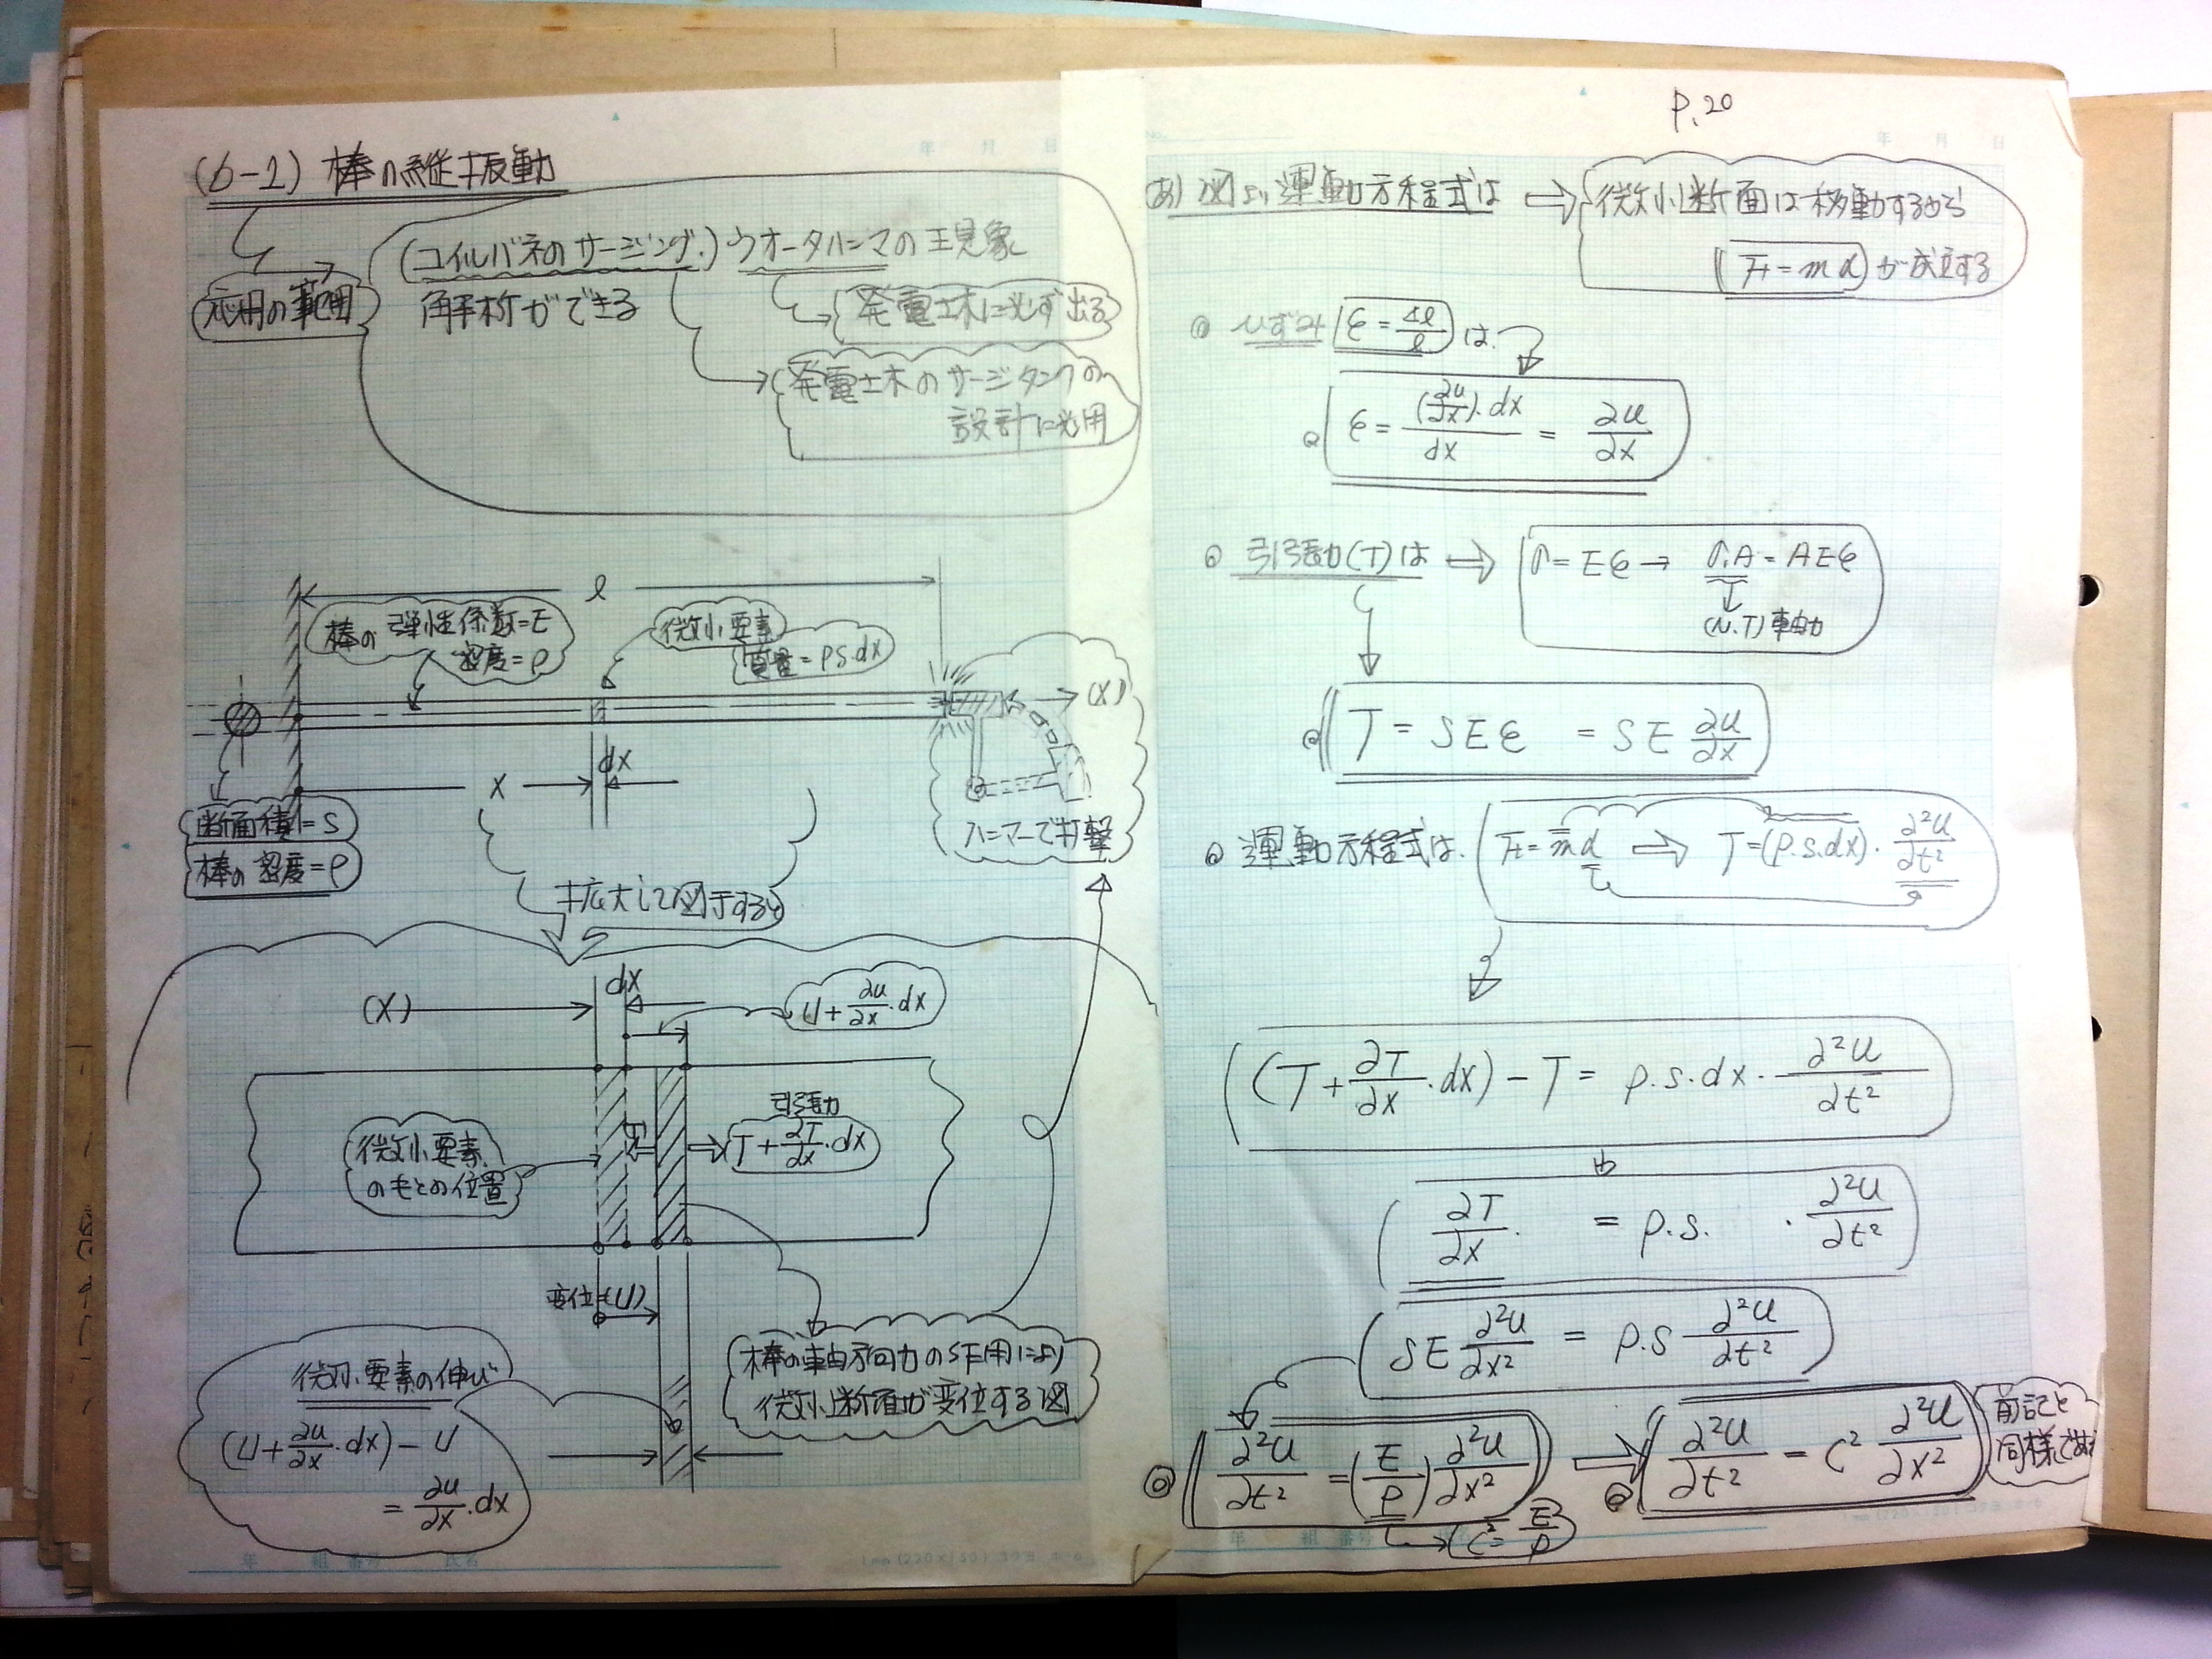 (6-2) 棒の縦振動
応用の範囲
(コイルバネのサージング.) ウオータハンマの現象
解析ができる
発電土木に必ず出る
発電土木のサージタンクの
設計に必用
ℓ
棒の弾性係数=E
密度=ρ
微小要素
質量=ρS.dx
(X)
dx
X
断面積=S
棒の密度=ρ
ハンマーで打撃
拡大して図示すると
dx
(X)
U+∂u/∂x・dx
引張力
T
T+∂T/∂x・dx
微小要素
のもとの位置
変位=(U)
微小要素の伸び
(U+∂u/∂x・dx)-U
=∂u/∂x・dx
棒の軸方向力の作用により
微小断面が変位する図
P.20
(あ) 図より運動方程式は ⇒ 微小断面は移動するから
F=mα が成立する
ひずみ ε=Δℓ/ℓ は
ε=(∂u/∂x)・dx/dx=∂u/∂x
引張力(T)は ⇒ σ=Eε → σ.A=AEε
(N.T) 軸力
T=SEε =SE ∂u/∂x
運動方程式は. F=mα ⇒ T=(ρ.s.dx)・∂²u/∂t²
(T+∂T/∂x・dx)-T=ρ.s.dx・∂²u/∂t²
∂T/∂x. =ρ.s. ・∂²u/∂t²
SE ∂²u/∂x² = ρ.s ∂²u/∂t²
∂²u/∂t²=(E/ρ)∂²u/∂x² ⇒ ∂²u/∂t²=C² ∂²u/∂x²
C²=E/ρ
前記と
同様である
年 月 日
No.
年 月 日
年 組 番号 氏名